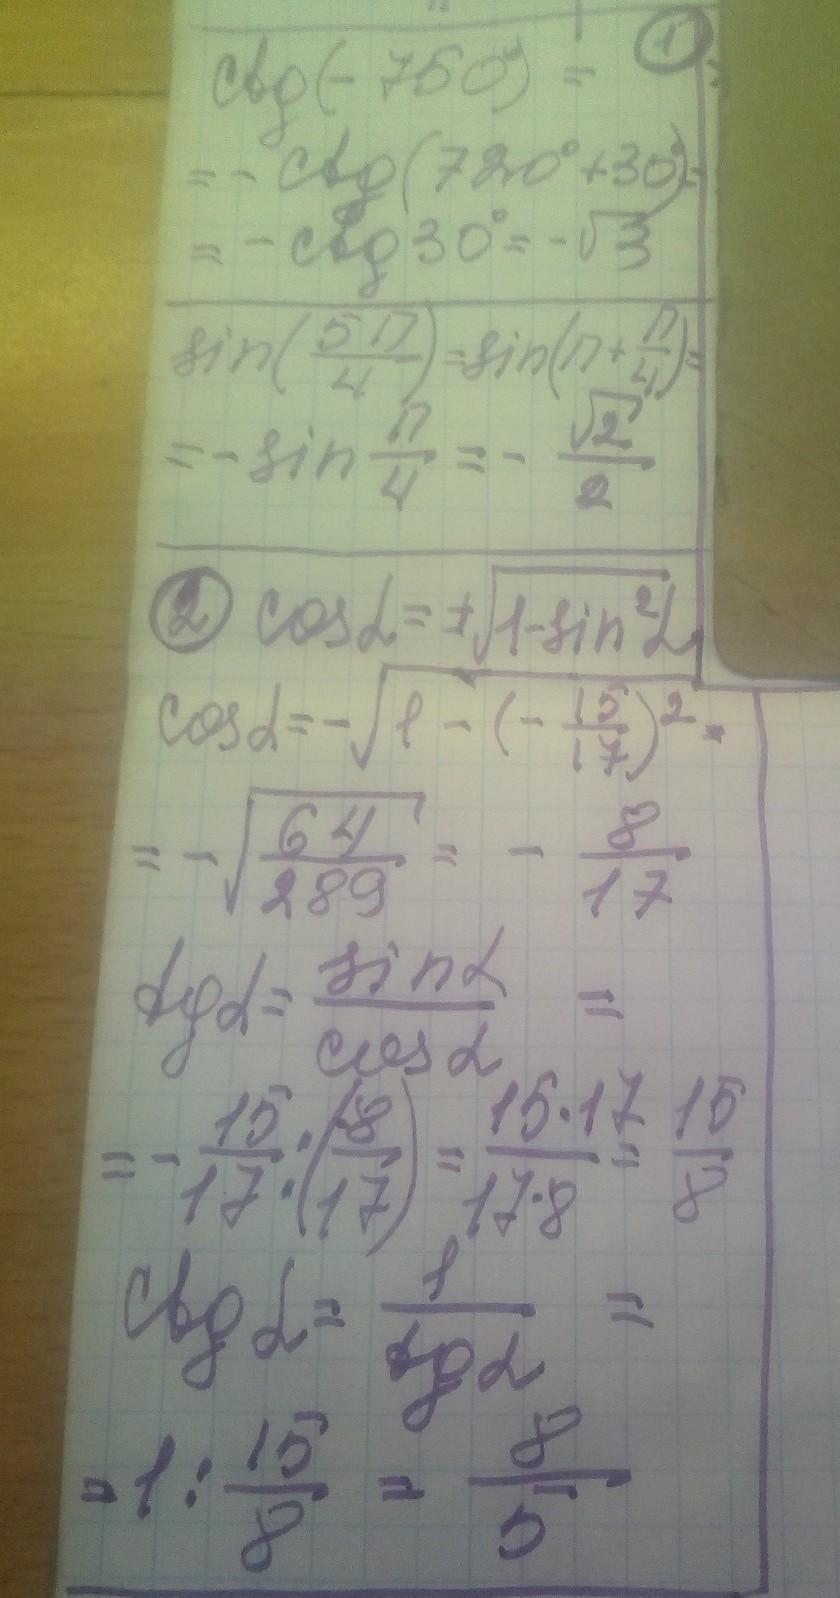 ①
ctg(-750°) =
= - ctg(720° + 30°) =
= - ctg 30° = -√3
sin(5π/4) = sin(π + π/4) =
= - sin π/4 = - √2/2
② cos α = ±√(1 - sin²α)
cos α = -√(1 - (-15/17)²) =
= -√(64/289) = - 8/17
tg α = sin α/cos α =
= - 15/17 : (-8/17) = 15·17/17·8 = 15/8
ctg α = 1/tg α =
= 1 : 15/8 = 8/5